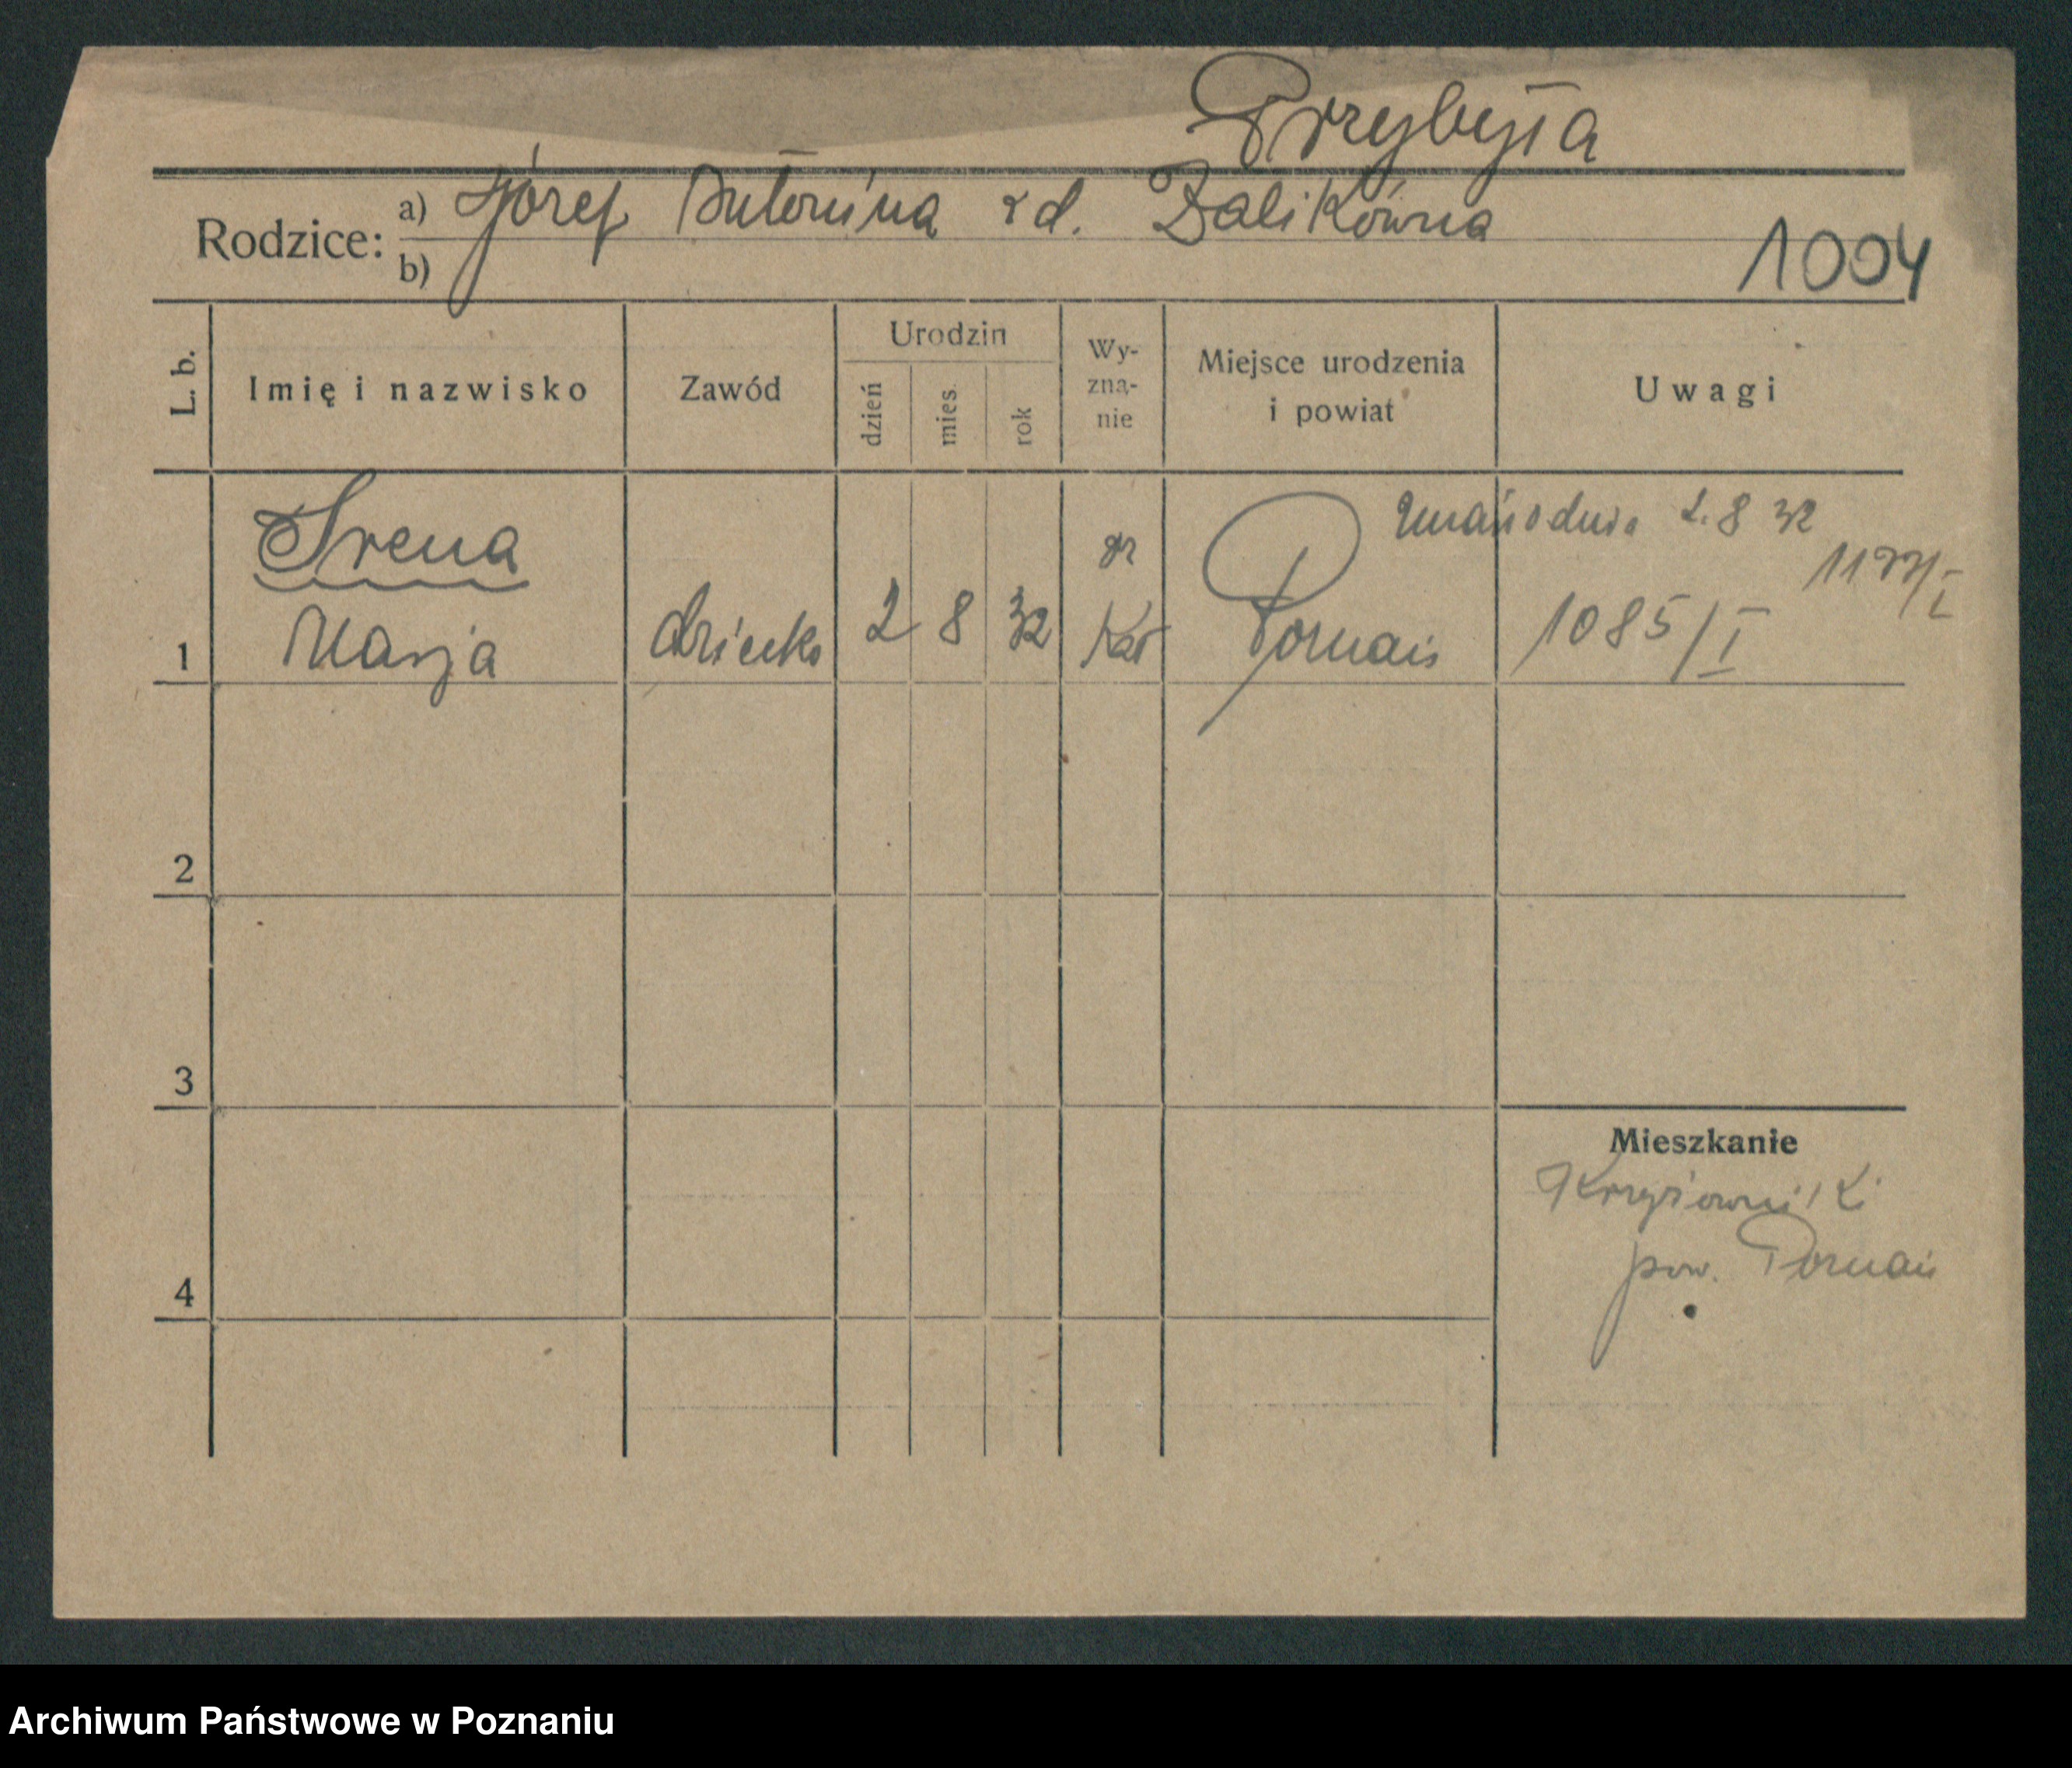 Przybyła
Rodzice: a) Józef Antonina zd. Dalikówna
b)
1004
L. b.
Imię i nazwisko
Zawód
Urodzin
dzień
mies.
rok
Wy-
zna-
nie
Miejsce urodzenia
i powiat
Uwagi
1
Irena
Marja
dziecko
2
8
32
rz
Kat
Poznań
Zmarło dnia 2. 8 32
1177/I
1085/I
2
3
4
Mieszkanie
Krzyżowniki
pow. Poznań
Archiwum Państwowe w Poznaniu